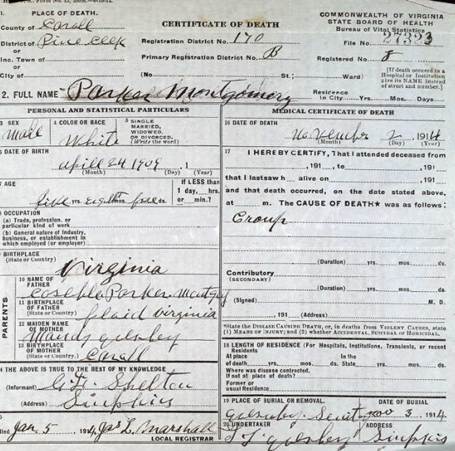 1 PLACE OF DEATH.
CERTIFICATE OF DEATH
COMMONWEALTH OF VIRGINIA
STATE BOARD OF HEALTH
Bureau of Vital Statistics
County of Caroll
District of Pine Creek
or
Inc. Town of
or
City of
Registration District No. 170
Primary Registration District No. B
(No. St.; Ward)
File No. 27323
Registered No. 8
(If death occurred in a Hospital or Institution give its NAME instead of street and number.)
2. FULL NAME Parker Montgomery
Residence in City Yrs. Mos. Days
PERSONAL AND STATISTICAL PARTICULARS
3 SEX
Male
4 COLOR OR RACE
White
5 SINGLE, MARRIED, WIDOWED, OR DIVORCED.
(Write the word)
6 DATE OF BIRTH
24 1909
(Month) (Day) (Year)
7 AGE
If LESS than 1 day, hrs. or min.?
8 OCCUPATION
(a) Trade, profession, or particular kind of work
(b) General nature of Industry, business, or establishment in which employed (or employer)
9 BIRTHPLACE
(State or Country)
Virginia
PARENTS
10 NAME OF FATHER
Parker
11 BIRTHPLACE OF FATHER
(State or Country)
Floid Virginia
12 MAIDEN NAME OF MOTHER
13 BIRTHPLACE OF MOTHER
(State or Country)
Caroll
14 THE ABOVE IS TRUE TO THE BEST OF MY KNOWLEDGE
(Informant) Shelton
(Address) Simpkins
Filed Jan 5 1914 Jas L. Marshall
LOCAL REGISTRAR
MEDICAL CERTIFICATE OF DEATH
16 DATE OF DEATH
November 2 1914
(Month) (Day) (Year)
17 I HEREBY CERTIFY, That I attended deceased
from , 191 , to , 191 ,
that I last saw h alive on , 191 ,
and that death occurred, on the date stated above,
at m. The CAUSE OF DEATH* was as follows:
Croup
(Duration) yrs. mos. ds.
Contributory
(SECONDARY)
(Duration) yrs. mos. ds.
(Signed) M. D.
, 191 (Address)
*State the DISEASE CAUSING DEATH, or, in deaths from VIOLENT CAUSES, state (1) MEANS OF INJURY; and (2) whether ACCIDENTAL, SUICIDAL, or HOMICIDAL.
18 LENGTH OF RESIDENCE (For Hospitals, Institutions, Transients, or recent Residents
At place of death yrs. mos. ds. In the State yrs. mos. ds.
Where was disease contracted, if not at place of death?
Former or usual Residence
19 PLACE OF BURIAL OR REMOVAL
DATE OF BURIAL
Nov 3, 1914
20 UNDERTAKER
ADDRESS
Simpkins